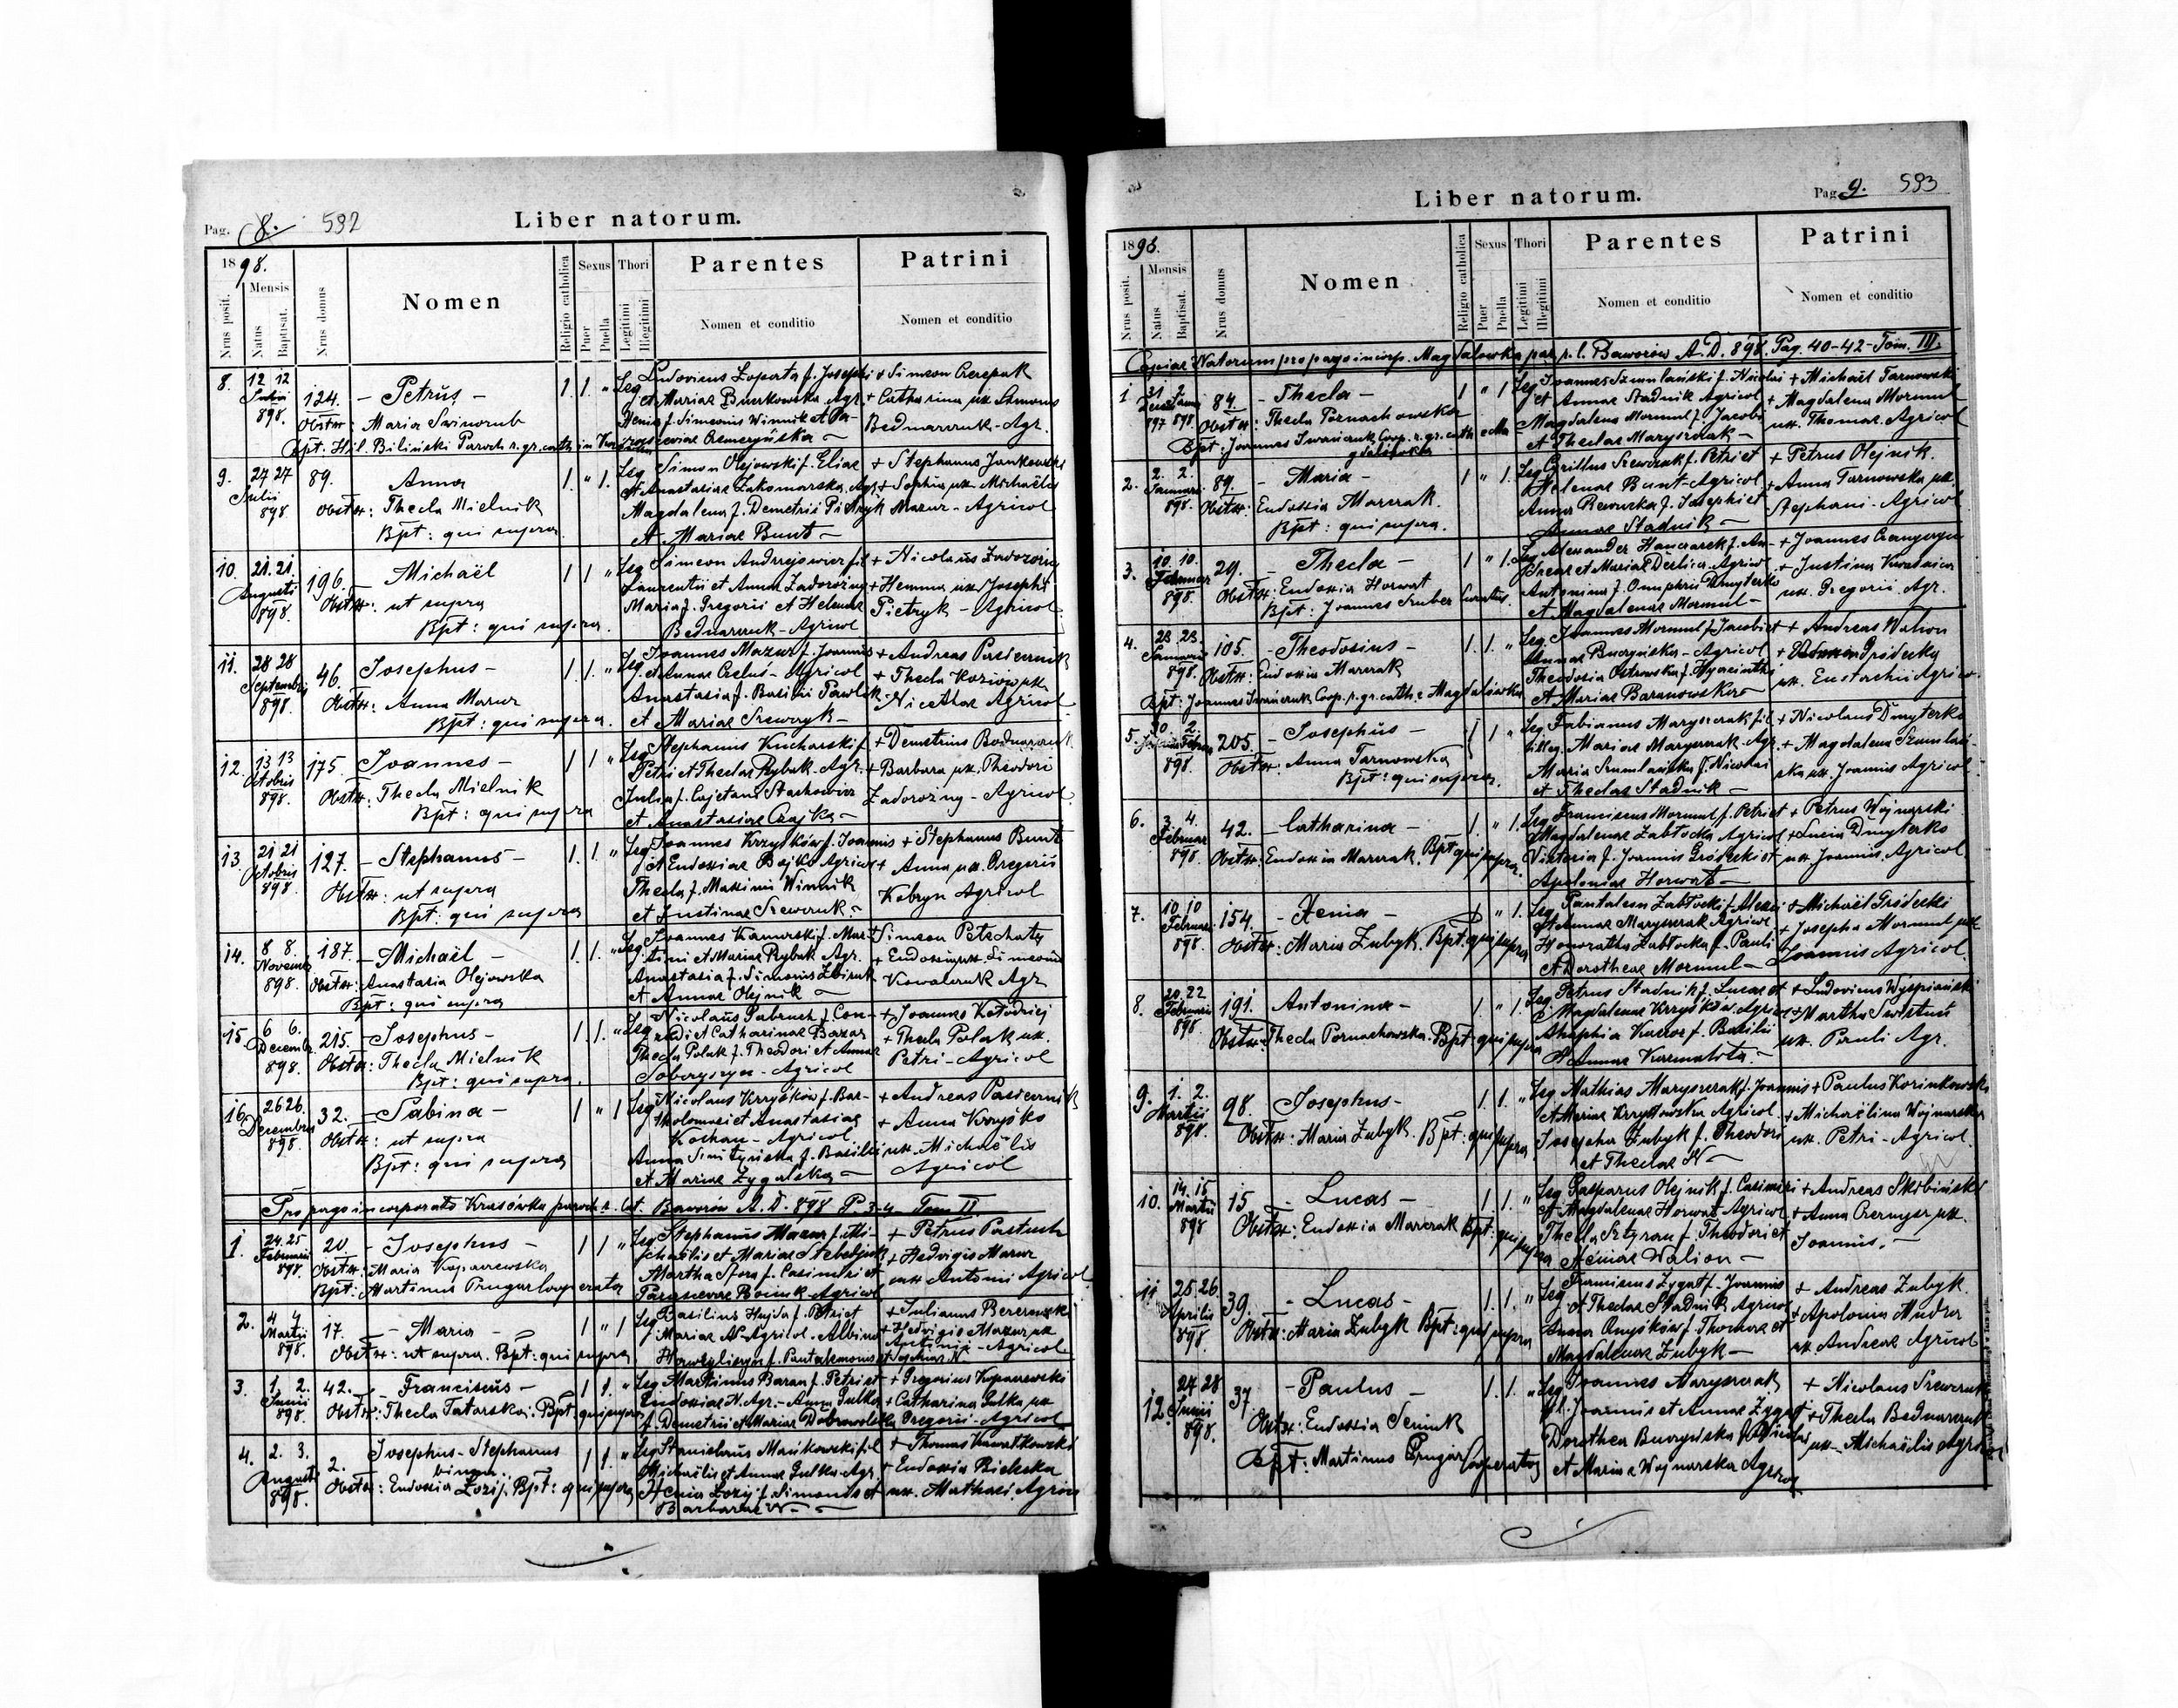 Pag. 8. 592
Liber natorum.
1898.
Nrus posit.
Mensis
Natus
Baptisat.
Nrus domus
Nomen
Religio catholica
Sexus
Puer
Puella
Thori
Legitimi
Illegitimi
Parentes
Nomen et conditio
Patrini
Nomen et conditio
8. 12 12 Julii 898. 124. - Petrus - 1 1 " Leg
Obstx: Maria
Bpt: Hil. Biliński Paroch r. gr. cath. in
Ludovicus Loparta f. Josephi
et Mariae Agr.
Xenia f. Simeonis Winnik et Pa-
+ Simeon Czerepak
+ Catharina ux. Simonis
Bednarczuk - Agr.
9. 27 27 Julii 898. 89. Anna 1. " 1. Leg
Obstx: Thecla Mielnik
Bpt: qui supra
Simon Olejowski f. Eliae
et Anastasiae Zakomarska Agr.
Magdalena f. Demetrii Pietryk
et Mariae Bunt -
+ Stephanus Jankowski
+ Sophia ux. Michaëlis
Mazur - Agricol
10. 21. 21. Augusti 898. 196. - Michaël 1 1 " Leg
Obstx: ut supra
Bpt: qui supra.
Simeon Andrzejowicz fil
Laurentii et Anna Zadorożny
Maria f. Gregorii et Helenae
Bednarczuk - Agricol
+ Nicolaus Zadorożny
+ Henna ux. Josephi
Pietryk - Agricol
11. 28 28 Septembris 898. 46. Josephus - 1 1. " Leg.
Obstx: Anna Mazur
Bpt: qui supra.
Joannes Mazur f. Joannis
et Annae - Agricol
Anastasia f. Basilii Pawluk
et Mariae Szewczyk -
+ Andreas Pasiecznik
+ Thecla Koziow ux.
Nicetae Agricol
12. 13 13 Octobris 898. 175. Joannes - 1 1 " Leg
Obstx: Thecla Mielnik
Bpt: qui supra
Stephanus Kucharski f.
Petri et Theclae Rybak - Agr.
Julia f. Cajetani Starkowicz
et Anastasiae Czajka -
+ Demetrius Bednarczuk
+ Barbara ux. Theodori
Zadorożny - Agricol.
13. 21 21 Octobris 898. 127. - Stephanus - 1. 1. " Leg
Obstx: ut supra
Bpt: qui supra
Joannes Krzyśków f. Joannis
et Eudoxiae Bojko Agricol
Thecla f. Maximi Winnik
et Justinae Szewczuk -
+ Stephanus Bunt
+ Anna ux. Gregorii
Kobryn Agricol
14. 8 8. Novemb 898. 187. - Michaël - 1. 1. " Leg
Obstx: Anastasia Olejowska
Bpt: qui supra
Joannes Kamerski f. Mar-
tini et Mariae Rybak Agr.
Anastasia f. Simeonis
et Annae Olejnik -
+ Simeon Petschaty
+ Eudoxia ux. Simeonis
Kowalczuk Agr
15 6 6. Decemb. 898. 215. - Josephus - 1 1. " Leg
Obstx: Thecla Mielnik
Bpt: qui supra.
Nicolaus f. Con-
radi et Catharinae Bazar
Thecla Polak f. Theodori et Annae
- Agricol
+ Joannes Kołodziej
+ Thecla Polak ux.
Petri - Agricol
16. 26 26. Decembris 898. 32. - Sabina - 1 " 1 Leg
Obstx: ut supra
Bpt: qui supra
Nicolaus Krzyśków f. Bar-
tholomaei et Anastasiae
Kochan - Agricol
Anna f. Basilii
et Mariae Zygalska -
+ Andreas Pasiecznik
+ Anna Krzyśko
ux. Michaëlis
Agricol
Pro pago incorporato Krasówka paroch. r. lat. Baworów A. D. 898 P. 3-4 Tom II.
1. 24. 25 Februarii 898 20. - Josephus - 1 1 " Leg
Obstx: Maria
Bpt: Martinus Prugar Cooperator
Stephanus Mazur f. Mi-
chaëlis et Mariae
Martha Sfora f. Casimiri et
Parascevae Agricol
+ Petrus Pastuch
+ Hedvigis Mazur
ux. Antonii Agricol
2. 4 4 Martii 898. 17. - Maria - 1 " 1 Leg
Obstx: ut supra. Bpt: qui supra
Basilius Hujda f. Petri et
Mariae N. Agricol. Albina
f. Pantalemonis et Sophiae N.
+ Julianus Berezowski
+ Hedvigis Mazur ux
Antonii - Agricol
3. 1. 2. Junii 898. 42. - Franciscus - 1 1. " Leg
Obstx: Thecla Tatarska. Bpt: qui supra
Martinus Baran f. Petri et
Eudoxiae N. Agr. - Anna Gulka
f. Demetrii et Mariae Dobrowolska
+ Gregorius
+ Catharina Gulka ux
Gregorii - Agricol
4. 2. 3. Augusti 898. 2. Josephus - Stephanus 1 1. " Leg
binom.
Obstx: Eudoxia Łozij. Bpt: qui supra
Stanislaus Mańkowski fil
Michaëlis et Annae Gulka - Agr.
Xenia Łozij f. Simonis et
Barbarae N -
+ Thomas Kwiatkowski
+ Eudoxia Bielecka
ux. Mathaei Agricol
Pag. 9. 593
Liber natorum.
1898.
Nrus posit.
Mensis
Natus
Baptisat.
Nrus domus
Nomen
Religio catholica
Sexus
Puer
Puella
Thori
Legitimi
Illegitimi
Parentes
Nomen et conditio
Patrini
Nomen et conditio
Copiae Natorum pro pago incorp. Magdalowka par. r. l. Baworów A. D. 898. Pag. 40-42 - Tom. III.
1 31 2 897 898. 84. - Thecla - 1 " 1 Leg
Obstx: Thecla Pornachowska
Bpt: Joannes Iwańczuk Coop. r. gr. cath.
Joannes Szumlański f. Nicolai
et Annae Stadnik Agricol
Magdalena Mormul f. Jacobi
et Theclae Maryszczak -
+ Michaël Tarnowski
+ Magdalena Mormul
ux. Thomae Agricol
2. 2. 2. Januarii 898. 89. - Maria - 1 " 1. Leg
Obstx: Eudoxia Marczak.
Bpt: qui supra.
Cyrillus Szewczuk f. Petri et
Helenae Bunt - Agricol
Anna f. Josephi et
Annae Stadnik -
+ Petrus Olejnik.
+ Anna Tarnowska ux.
Stephani - Agricol
3. 10. 10. Februar 898. 29. - Thecla - 1 " 1. Leg
Obstx: Eudoxia Horwat
Bpt: Joannes Gruber Curatus.
Alexander f. An-
dreae et Mariae Derlica - Agricol
Antonina f. Onuphrii Dmyterko
et Magdalenae Mormul -
+ Joannes
+ Justina
ux. Gregorii Agr.
4. 23 23. Januarii 898. 105. - Theodosius - 1. 1. " Leg
Obstx: Eudoxia Marczak
Bpt: Joannes Iwańczuk Coop. r. gr. cath. e Magdalówka
Joannes Mormul f. Jacobi et
Annae Buczyńska - Agricol
Theodosia Ostrowska f. Hyacinthi
et Mariae Baranowska -
+ Andreas Walion
+ Gródecka
ux. Eustachii Agricol.
5. 2. 898. 205. - Josephus - 1 1 " Leg
Obstx: Anna Tarnowska
Bpt: qui supra.
Fabianus Maryszczak fil
illeg. Mariae Maryszczak - Agr.
Maria Szumlańska f. Nicolai
et Theclae Stadnik -
+ Nicolaus Dmyterko
+ Magdalena Szumlań-
ska ux. Joannis Agricol.
6. 3. 4. Februar 898. 42. - Catharina - 1. " 1. Leg
Obstx: Eudoxia Marczak. Bpt: qui supra.
Franciscus Mormul f. Petri et
Magdalenae Zabłocka Agricol
Victoria f. Joannis Gródecki et
Apoloniae Horwat -
+ Petrus Wojnarski
+ Lucia Dmyterko
ux. Joannis Agricol
7. 10 10 Februar 898. 154. - Xenia - 1 " 1. Leg
Obstx: Maria Zubyk. Bpt: qui supra
Pantaleon Zabłocki f. Alexii
et Annae Maryszczak Agricol
Honoratha Zabłocka f. Pauli
et Dorotheae Mormul -
+ Michaël Gródecki
+ Josepha Mormul ux
Joannis Agricol.
8. 20. 22 Februarii 898. 191. Antonina - 1 " 1. Leg
Obstx: Thecla Pornachowska. Bpt: qui supra
Petrus Stadnik f. Lucae et
Magdalenae Krzyśków Agricol
Agaphia f. Basilii
et Annae
+ Ludovicus Wyspiański
+ Martha
ux. Pauli Agr.
9. 1. 2. Martii 898. 98. Josephus - 1. 1. " Leg
Obstx: Maria Zubyk. Bpt: qui supra
Mathias Maryszczak f. Joannis
et Mariae Agricol
Josepha Zubyk f. Theodori
et Theclae N -
+ Paulus Korinkowski
+ Michaëlina Wojnarska
ux. Petri - Agricol.
10. 14. 15 Martii 898 15 - Lucas - 1. 1. " Leg
Obstx: Eudoxia Marczak Bpt: qui supra
Gasparus Olejnik f. Casimiri
et Magdalenae Horwat Agricol
Thecla f. Theodori et
Xeniae Walion -
+ Andreas Skibiński
+ Anna ux.
Joannis. -
11 25. 26. Aprilis 898. 39. - Lucas - 1. 1. " Leg
Obstx: Maria Zubyk Bpt: qui supra
Franciscus Zygat f. Joannis
et Theclae Stadnik Agricol
Anna f. Thomae et
Magdalenae Zubyk -
+ Andreas Zubyk.
+ Apolonia Mudra
ux. Andreae Agricol
12. 27 28 Junii 898. 37. - Paulus - 1. 1. " Leg
Obstx: Eudoxia
Bpt: Martinus Prugar Cooperator
Joannes Maryszczak
fil. Joannis et Annae Zygat
Dorothea Buczyńska f.
et Mariae Wojnarska Agricol
+ Nicolaus Szewczuk
+ Thecla Bednarczuk
ux. Michaëlis Agricol